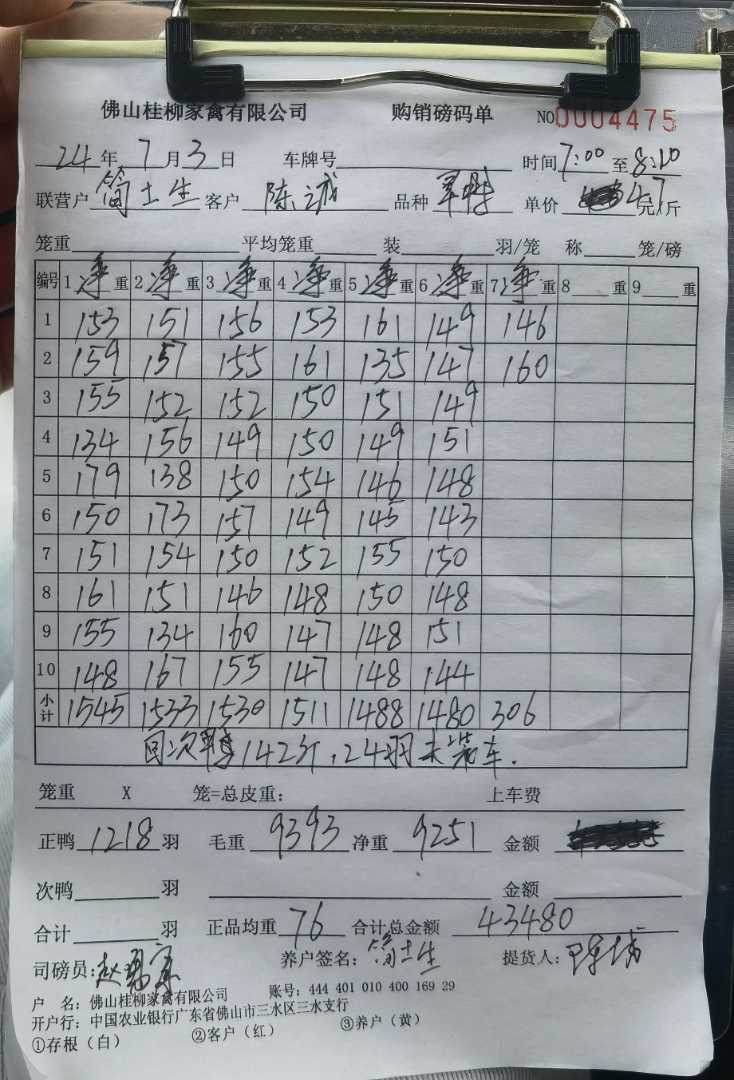 佛山桂柳家禽有限公司 购销磅码单 NO 0004475
24年7月3日 车牌号 时间7:00至8:20
联营户 简士生 客户 陈诚 品种 单价 4.7元/斤
笼重 平均笼重 装 羽/笼 称 笼/磅
编号 1净重 2净重 3净重 4净重 5净重 6净重 7净重 8 重 9 重
1 153 151 156 153 161 149 146
2 159 157 155 161 135 147 160
3 155 152 152 150 151 149
4 134 156 149 150 149 151
5 179 138 150 154 146 148
6 150 173 157 149 145 143
7 151 154 150 152 155 150
8 161 151 146 148 150 148
9 155 134 160 147 148 151
10 148 167 155 147 148 144
小计 1545 1533 1530 1511 1488 1480 306
回次 142斤,24羽未装车.
笼重 X 笼=总皮重: 上车费
正鸭 1218 羽 毛重 9393 净重 9251 金额
次鸭 羽 金额
合计 羽 正品均重 76 合计总金额 43480
司磅员: 养户签名: 简士生 提货人:
户 名: 佛山桂柳家禽有限公司 账号: 444 401 010 400 169 29
开户行: 中国农业银行广东省佛山市三水区三水支行
①存根(白) ②客户(红) ③养户(黄)